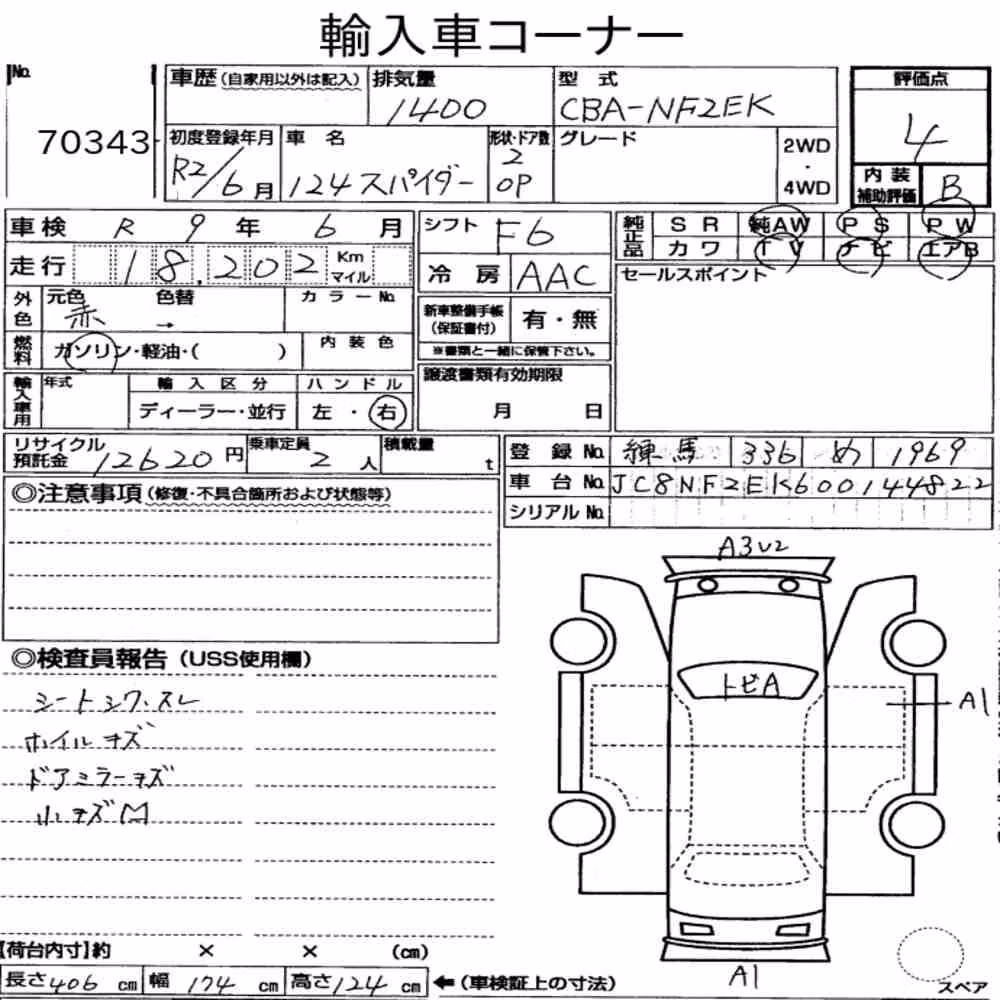 輸入車コーナー
No.
70343
車歴 (自家用以外は記入)
排気量
1400
型式
CBA-NF2EK
評価点
4
初度登録年月
R2/6月
車名
124スパイダー
形状・ドア数
2
OP
グレード
2WD
・
4WD
内装
補助評価
B
車検 R 9 年 6 月
シフト F6
純正品
SR 純AW PS PW
カワ TV ナビ エアB
走行 18,202 Km
マイル
冷房 AAC
セールスポイント
外色
元色 色替
赤 →
カラーNo.
新車整備手帳
(保証書付)
有・無
※書類と一緒に保管下さい。
燃料
ガソリン・軽油・( )
内装色
輸入車用
年式
輸入区分
ハンドル
ディーラー・並行
左・右
譲渡書類有効期限
月 日
リサイクル
預託金
12620円
乗車定員
2人
積載量
t
登録No. 練馬 336 め 1969
車台No. JC8NF2EK600144822
シリアルNo.
◎注意事項(修復・不具合箇所および状態等)
A3U2
◎検査員報告(USS使用欄)
トビA
シートシワ、スレ
A1
ホイルキズ
ドアミラーキズ
小キズM
【荷台内寸】約 × × (cm)
A1
長さ406cm 幅174cm 高さ124cm ←(車検証上の寸法)
スペア